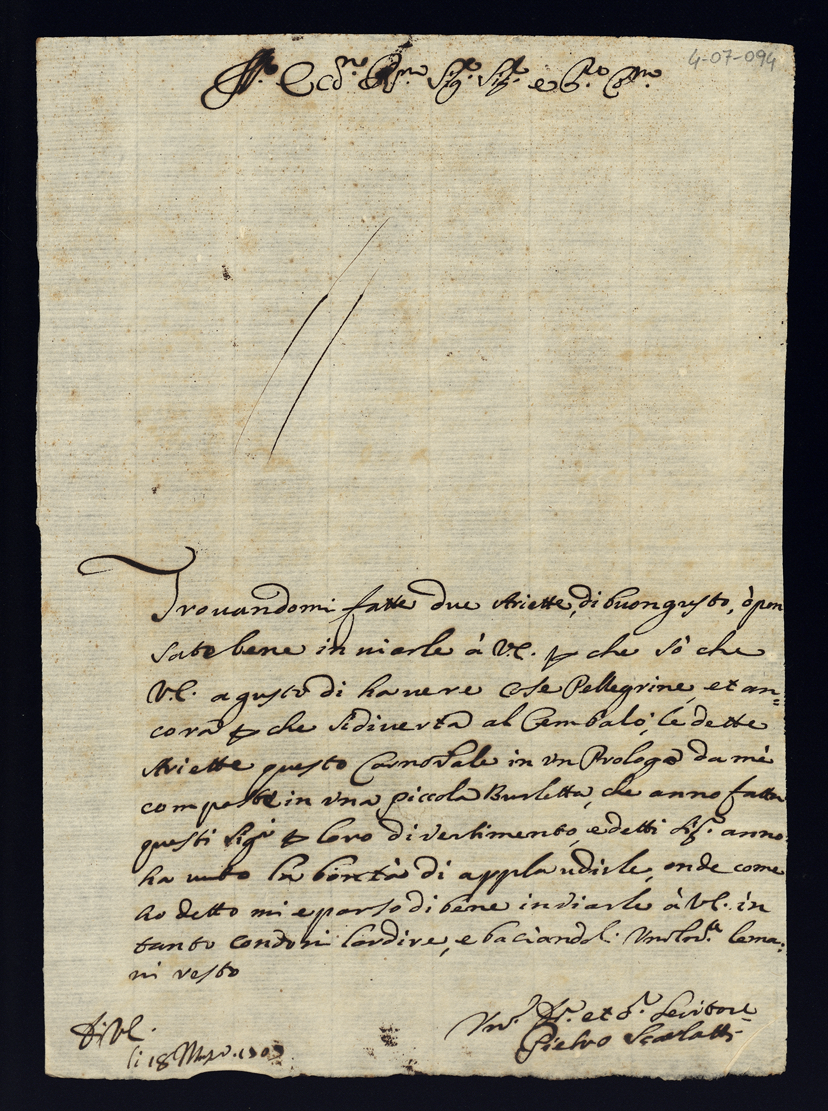 4-07-094
Sig.r Sig.r e
Trovandomi fatte due Ariette, di buon gusto, ò pen
sato bene inviarle à V.E. p che sò che
V.E. a gusto di havere cose Pellegrine, et an=
cora p che si diverta al Cembalo; le dette
Ariette questo Carnovale in vn Prologo da mè
composte in vna piccola Burletta, che anno fatta
questi Sig.ri p loro divertimento, e detti Sig.ri anno
ha vuto la bontà di applaudirle, onde come
ho detto mi e parso di bene inviarle à V.E. in
tanto condoni l'ardire, e baciandoli le ma:
ni resto
Di V.E.
li 18
et Servitore
Pietro Scarlatti